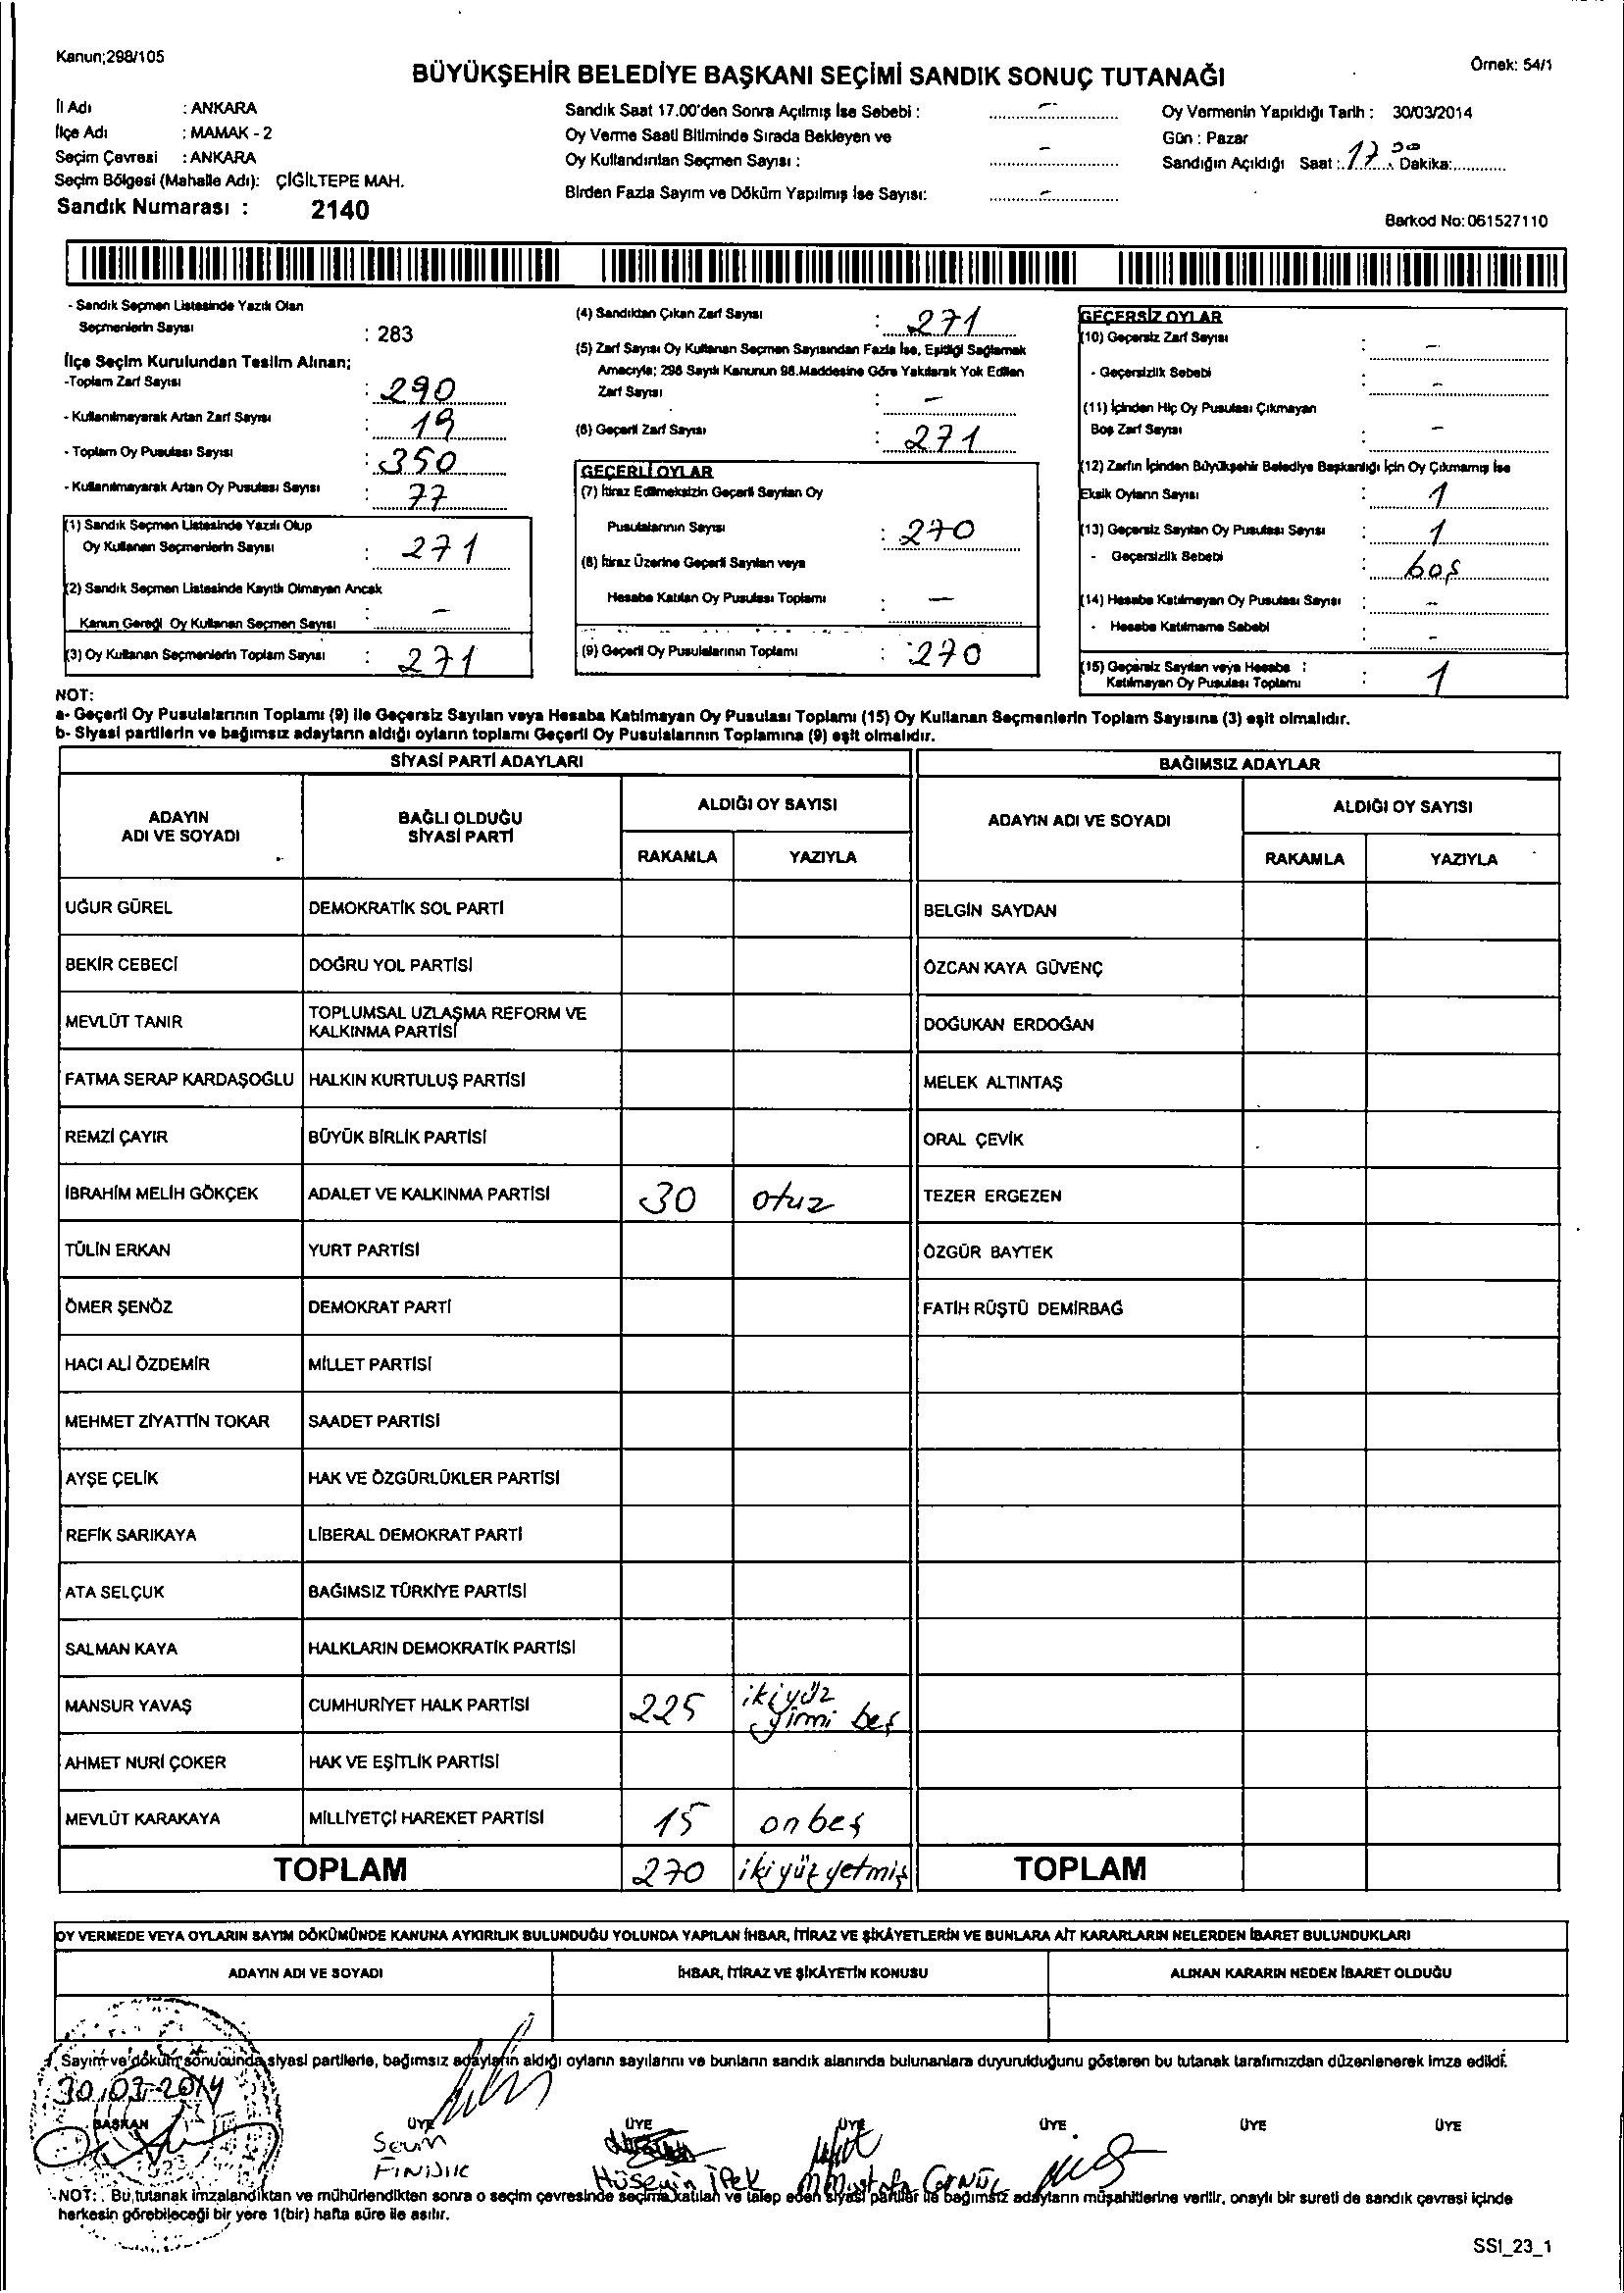 Kanun;298/105
Örnek: 54/1
BÜYÜKŞEHİR BELEDİYE BAŞKANI SEÇİMİ SANDIK SONUÇ TUTANAĞI
İl Adı : ANKARA
İlçe Adı : MAMAK - 2
Seçim Çevresi : ANKARA
Seçim Bölgesi (Mahalle Adı): ÇİĞİLTEPE MAH.
Sandık Numarası : 2140
Sandık Saat 17.00'den Sonra Açılmış İse Sebebi : -
Oy Verme Saati Bitiminde Sırada Bekleyen ve
Oy Kullandırılan Seçmen Sayısı : -
Birden Fazla Sayım ve Döküm Yapılmış İse Sayısı: -
Oy Vermenin Yapıldığı Tarih : 30/03/2014
Gün : Pazar
Sandığın Açıldığı Saat : 17 00 Dakika:
Barkod No: 061527110
- Sandık Seçmen Listesinde Yazılı Olan
Seçmenlerin Sayısı : 283
İlçe Seçim Kurulundan Teslim Alınan;
-Toplam Zarf Sayısı : 290
- Kullanılmayarak Artan Zarf Sayısı : 19
- Toplam Oy Pusulası Sayısı : 350
- Kullanılmayarak Artan Oy Pusulası Sayısı : 77
(1) Sandık Seçmen Listesinde Yazılı Olup
Oy Kullanan Seçmenlerin Sayısı : 271
(2) Sandık Seçmen Listesinde Kayıtlı Olmayan Ancak
Kanun Gereği Oy Kullanan Seçmen Sayısı : -
(3) Oy Kullanan Seçmenlerin Toplam Sayısı : 271
(4) Sandıktan Çıkan Zarf Sayısı : 271
(5) Zarf Sayısı Oy Kullanan Seçmen Sayısından Fazla İse, Eşitliği Sağlamak
Amacıyla; 298 Sayılı Kanunun 98.Maddesine Göre Yakılarak Yok Edilen
Zarf Sayısı : -
(6) Geçerli Zarf Sayısı : 271
GEÇERLİ OYLAR
(7) İtiraz Edilmeksizin Geçerli Sayılan Oy
Pusulalarının Sayısı : 270
(8) İtiraz Üzerine Geçerli Sayılan veya
Hesaba Katılan Oy Pusulası Toplamı : -
(9) Geçerli Oy Pusulalarının Toplamı : 270
GEÇERSİZ OYLAR
(10) Geçersiz Zarf Sayısı : -
- Geçersizlik Sebebi : -
(11) İçinden Hiç Oy Pusulası Çıkmayan
Boş Zarf Sayısı : -
(12) Zarfın İçinden Büyükşehir Belediye Başkanlığı İçin Oy Çıkmamış İse
Eksik Oyların Sayısı : 1
(13) Geçersiz Sayılan Oy Pusulası Sayısı : 1
- Geçersizlik Sebebi : boş
(14) Hesaba Katılmayan Oy Pusulası Sayısı : -
- Hesaba Katılmama Sebebi : -
(15) Geçersiz Sayılan veya Hesaba :
Katılmayan Oy Pusulası Toplamı : 1
NOT:
a- Geçerli Oy Pusulalarının Toplamı (9) ile Geçersiz Sayılan veya Hesaba Katılmayan Oy Pusulası Toplamı (15) Oy Kullanan Seçmenlerin Toplam Sayısına (3) eşit olmalıdır.
b- Siyasi partilerin ve bağımsız adayların aldığı oyların toplamı Geçerli Oy Pusulalarının Toplamına (9) eşit olmalıdır.
SİYASİ PARTİ ADAYLARI
ADAYIN
ADI VE SOYADI
BAĞLI OLDUĞU
SİYASİ PARTİ
ALDIĞI OY SAYISI
RAKAMLA YAZIYLA
UĞUR GÜREL DEMOKRATİK SOL PARTİ
BEKİR CEBECİ DOĞRU YOL PARTİSİ
MEVLÜT TANIR TOPLUMSAL UZLAŞMA REFORM VE
KALKINMA PARTİSİ
FATMA SERAP KARDAŞOĞLU HALKIN KURTULUŞ PARTİSİ
REMZİ ÇAYIR BÜYÜK BİRLİK PARTİSİ
İBRAHİM MELİH GÖKÇEK ADALET VE KALKINMA PARTİSİ 30 otuz
TÜLİN ERKAN YURT PARTİSİ
ÖMER ŞENÖZ DEMOKRAT PARTİ
HACI ALİ ÖZDEMİR MİLLET PARTİSİ
MEHMET ZİYATTİN TOKAR SAADET PARTİSİ
AYŞE ÇELİK HAK VE ÖZGÜRLÜKLER PARTİSİ
REFİK SARIKAYA LİBERAL DEMOKRAT PARTİ
ATA SELÇUK BAĞIMSIZ TÜRKİYE PARTİSİ
SALMAN KAYA HALKLARIN DEMOKRATİK PARTİSİ
MANSUR YAVAŞ CUMHURİYET HALK PARTİSİ 225 ikiyüz
yirmi beş
AHMET NURİ ÇOKER HAK VE EŞİTLİK PARTİSİ
MEVLÜT KARAKAYA MİLLİYETÇİ HAREKET PARTİSİ 15 onbeş
TOPLAM 270 ikiyüz yetmiş
BAĞIMSIZ ADAYLAR
ADAYIN ADI VE SOYADI
ALDIĞI OY SAYISI
RAKAMLA YAZIYLA
BELGİN SAYDAN
ÖZCAN KAYA GÜVENÇ
DOĞUKAN ERDOĞAN
MELEK ALTINTAŞ
ORAL ÇEVİK
TEZER ERGEZEN
ÖZGÜR BAYTEK
FATİH RÜŞTÜ DEMİRBAĞ
TOPLAM
OY VERMEDE VEYA OYLARIN SAYIM DÖKÜMÜNDE KANUNA AYKIRILIK BULUNDUĞU YOLUNDA YAPILAN İHBAR, İTİRAZ VE ŞİKÂYETLERİN VE BUNLARA AİT KARARLARIN NELERDEN İBARET BULUNDUKLARI
ADAYIN ADI VE SOYADI İHBAR, İTİRAZ VE ŞİKÂYETİN KONUSU ALINAN KARARIN NEDEN İBARET OLDUĞU
Sayım ve döküm sonucunda siyasi partilerle, bağımsız adayların aldığı oyların sayılarını ve bunların sandık alanında bulunanlara duyurulduğunu gösteren bu tutanak tarafımızdan düzenlenerek imza edildi.
30.03.2014
BAŞKAN ÜYE ÜYE ÜYE ÜYE ÜYE ÜYE
FINDIK
Hüseyin İPEK Mustafa GÖNÜL
NOT: . Bu tutanak imzalandıktan ve mühürlendikten sonra o seçim çevresinde seçime katılan ve talep eden siyasi partiler ile bağımsız adayların müşahitlerine verilir, onaylı bir sureti de sandık çevresi içinde
herkesin görebileceği bir yere 1(bir) hafta süre ile asılır.
SSI_23_1